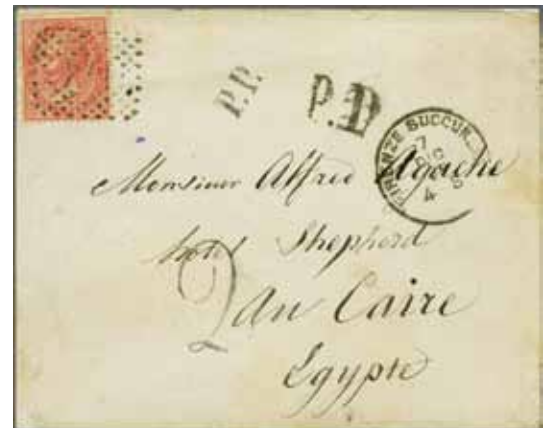 P.P.
P.D
FIRENZE SUCCUR.
Monsieur Alfred Agache
hotel Shepherd
2
au Caire
Egypte